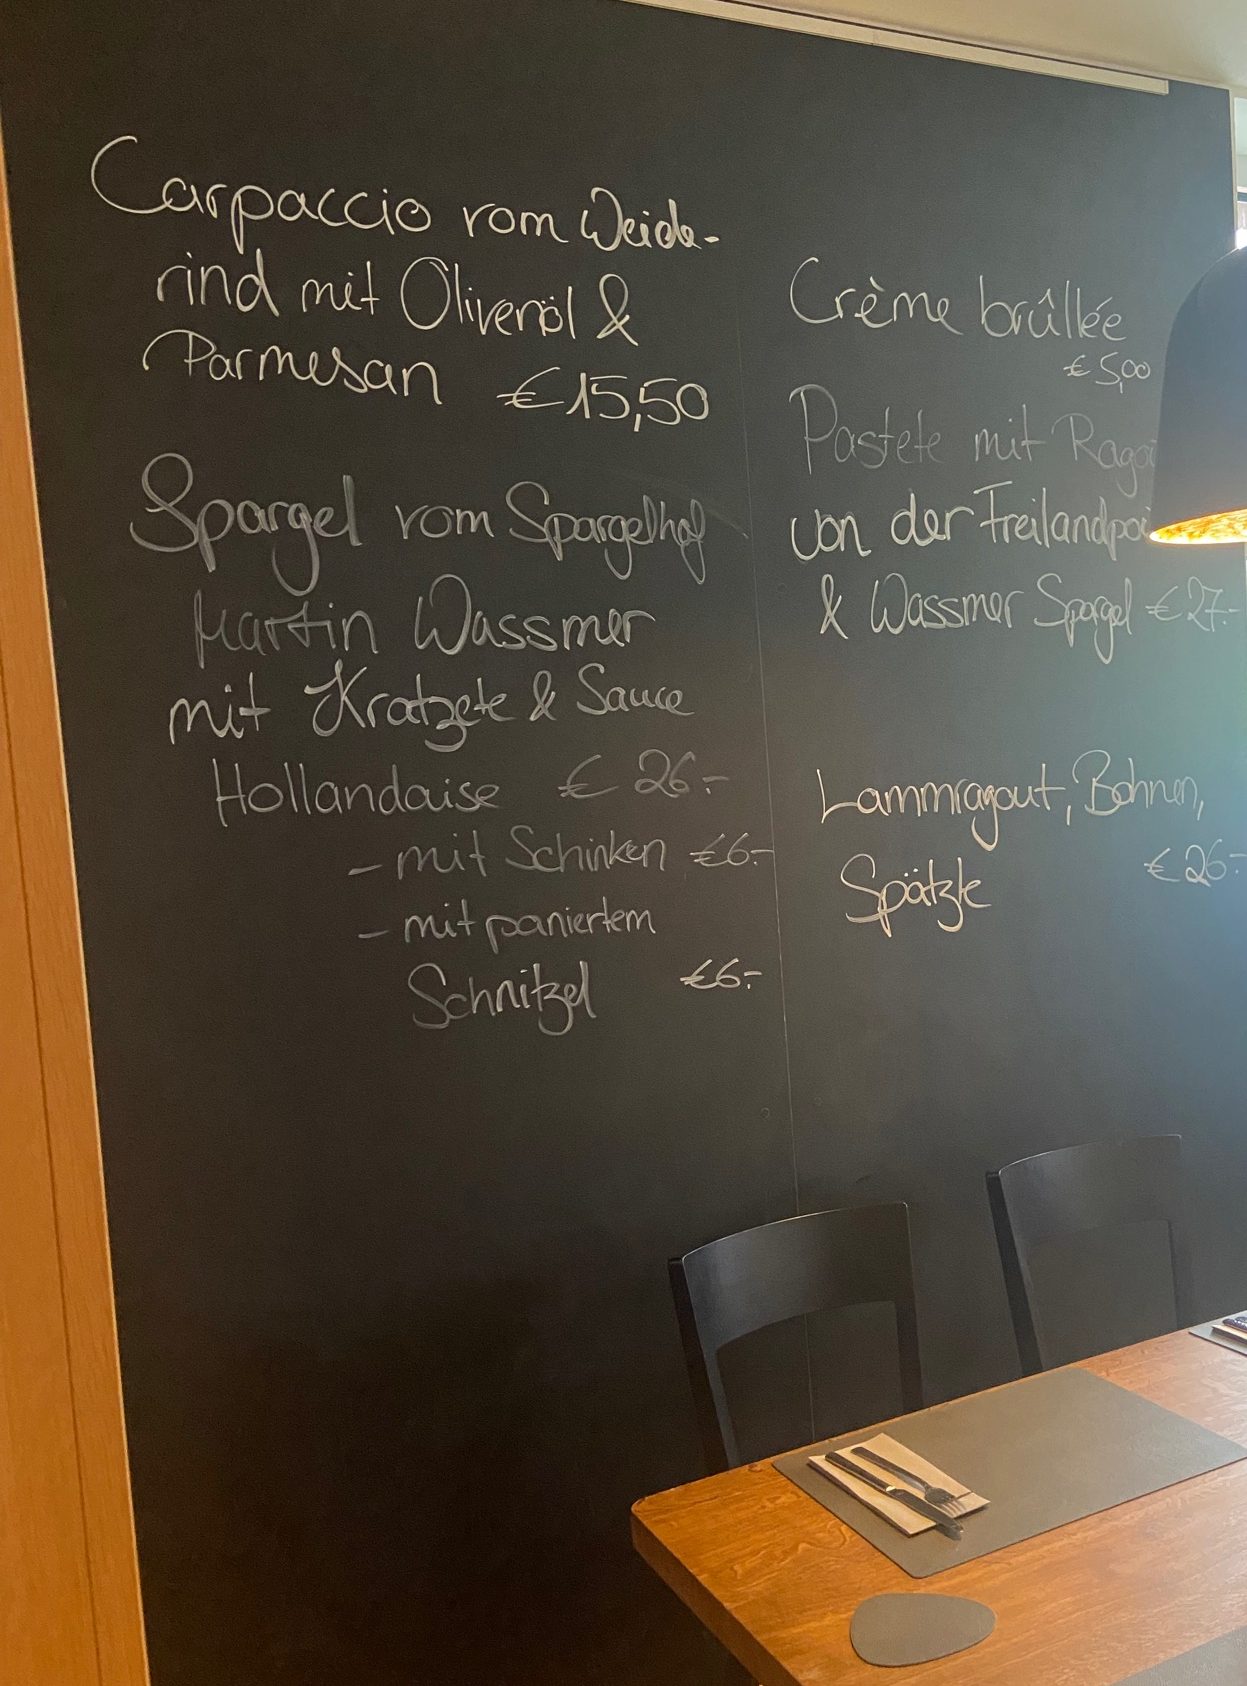 Carpaccio vom Weide-
rind mit Olivenöl &
Parmesan €15,50
Spargel vom Spargelhof
Martin Wassmer
mit Kratzete & Sauce
Hollandaise € 26.-
- mit Schinken €6.-
- mit paniertem
Schnitzel €6.-
Crème brûllée
€ 5,00
Pastete mit
von der
& Wassmer Spargel € 27.-
Lammragout, Bohnen,
Spätzle € 26.-